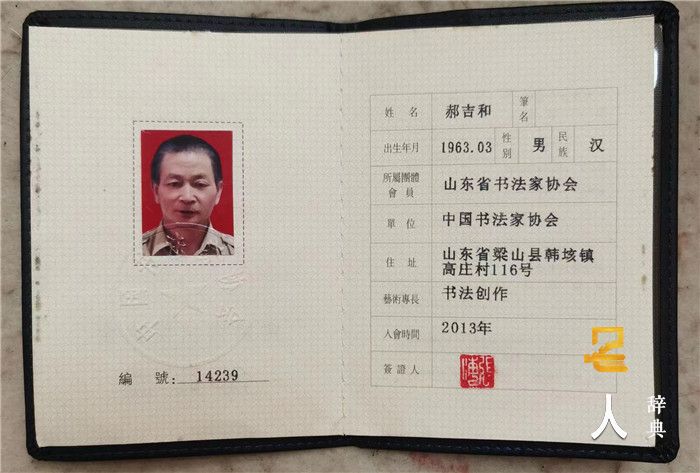 編 號: 14239
姓 名 郝吉和 筆名
出生年月 1963.03 性別 男 民族 汉
所屬團體會員 山东省书法家协会
單 位 中国书法家协会
住 址 山东省梁山县韩垓镇
高庄村116号
藝術專長 书法创作
入會時間 2013年
簽證人
名人辞典